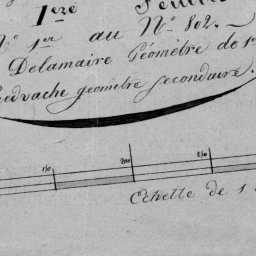 1ere Feuille
N° 1er au N° 802.
Delamaire Géomètre de 1
géomètre secondaire.
150 200 250
Echelle de 1